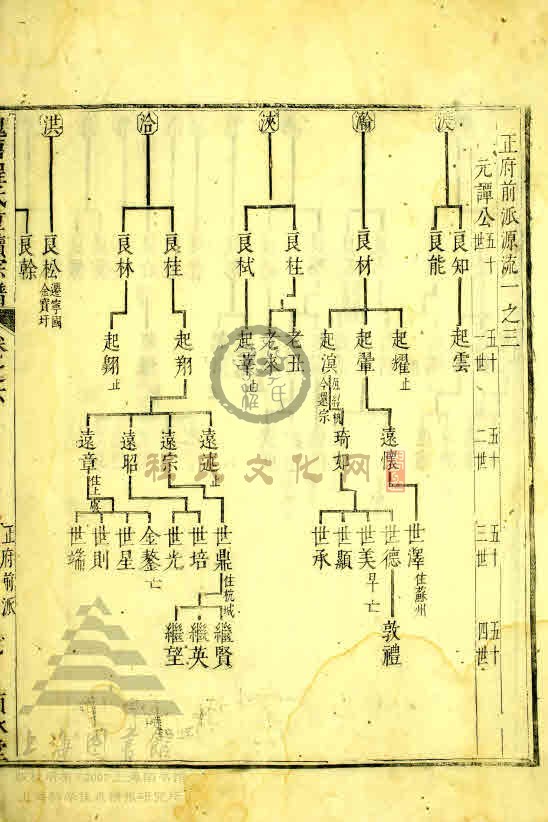 正府前派源流一之三
元譚公五十世
五十一世
五十二世
五十三世
五十四世
瀚
浹
洽
洪
良知
良能
良材
良柱
良栻
良桂
良林
良松遷寧國金寶圩
良榦
起雲
起耀止
起鞏
起溟
今遷宗
老丑
老來
起翔
起翱止
遠懷
琦如
遠述止
遠宗
遠昭
遠章住上處
世澤住蘇州
世德
世美早亡
世顯
世承
世鼎住杭城
世培
世光
金鏊亡
世星
世則
世端
敦禮
繼賢
繼英
繼望
正府前派
程氏文化网
上海图书馆